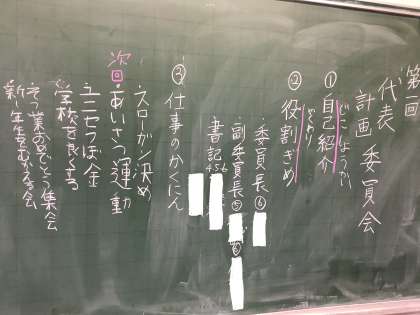 第一回
代表
計画委員会
①自己紹介
②役割ぎめ
・委員長⑥
・副委員長⑤
⑥
・書記456
③仕事のかくにん
次回
・スローガン決め
・あいさつ運動
・ユニセフぼ金
・学校を良くする
・そつ業おめでとう集会
・新1年生をむかえる会